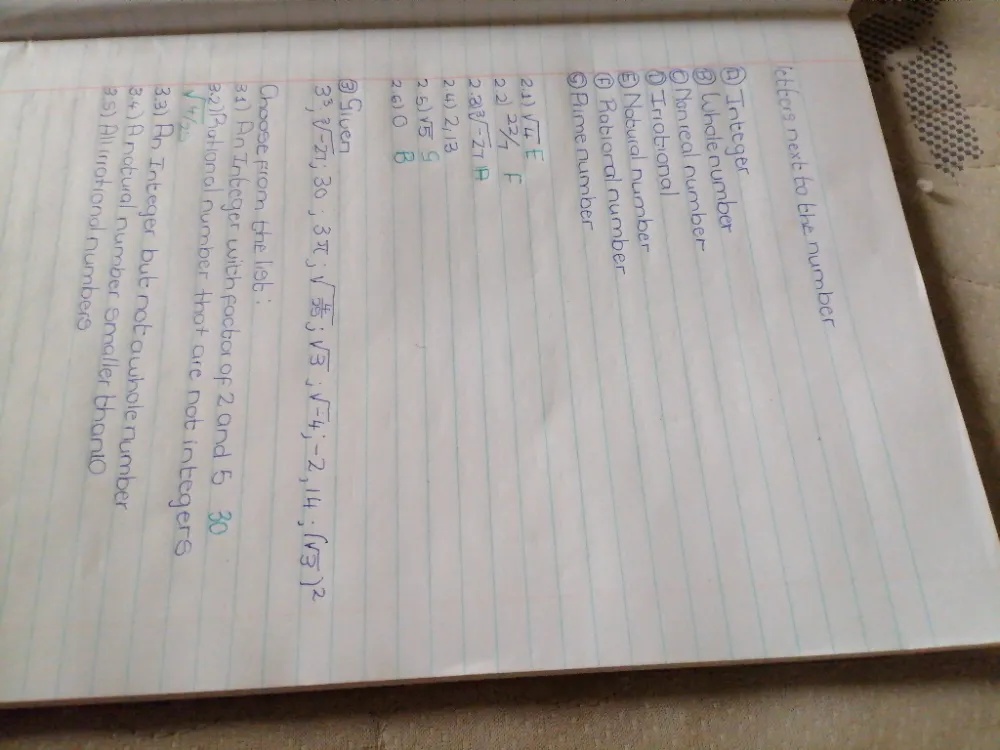 letters next to the number
Ⓐ Integer
Ⓑ Whole number
Ⓒ Nonreal number
Ⓓ Irrational
Ⓔ Natural number
Ⓕ Rational number
Ⓖ Prime number
2.1) √4 E
2.2) 22/7 F
2.3) ∛-27 A
2.4) 2,13
2.5) √5 G
2.6) 0 B
③ Given
3³, ∛-27; 30; 3π; √; √3; √-4; -2,14; (√3)²
Choose from the list:
3.1) An Integer with factor of 2 and 5 30
3.2) Rational number that are not integers
√4/25
3.3) An Integer but not a whole number
3.4) A natural number smaller than 10
3.5) All irrational numbers